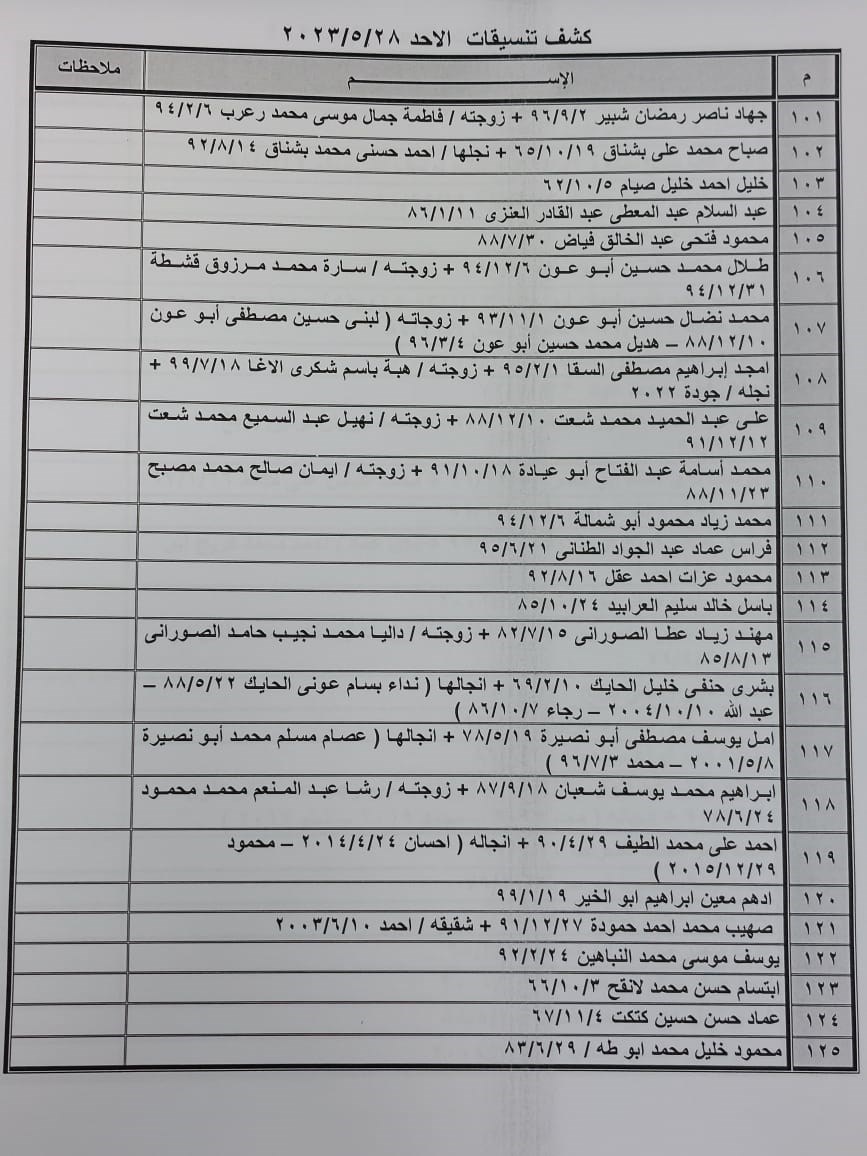 كشف تنسيقات الاحد ٢٠٢٣/٥/٢٨
م الإســـم ملاحظات
١٠١ جهاد ناصر رمضان شبير ٩٦/٩/٢ + زوجته / فاطمة جمال موسى محمد زعرب ٩٤/٢/٦
١٠٢ صباح محمد على بشناق ٦٥/١٠/١٩ + نجلها / احمد حسنى محمد بشناق ٩٢/٨/١٤
١٠٣ خليل احمد خليل صيام ٦٢/١٠/٥
١٠٤ عبد السلام عبد المعطى عبد القادر العنزى ٨٦/١/١١
١٠٥ محمود فتحى عبد الخالق فياض ٨٨/٧/٣٠
١٠٦ طلال محمد حسين أبو عون ٩٤/١٢/٦ + زوجته / سارة محمد مرزوق قشطة
٩٤/١٢/٣١
١٠٧ محمد نضال حسين أبو عون ٩٣/١١/١ + زوجاته ( لبنى حسين مصطفى أبو عون
٨٨/١٢/١٠ – هديل محمد حسين أبو عون ٩٦/٣/٤ )
١٠٨ امجد إبراهيم مصطفى السقا ٩٥/٢/١ + زوجته / هبة باسم شكرى الاغا ٩٩/٧/١٨ +
نجله / جودة ٢٠٢٢
١٠٩ على عبد الحميد محمد شعت ٨٨/١٢/١٠ + زوجته / نهيل عبد السميع محمد شعت
٩١/١٢/١٢
١١٠ محمد أسامة عبد الفتاح أبو عيادة ٩١/١٠/١٨ + زوجته / ايمان صالح محمد مصبح
٨٨/١١/٢٣
١١١ محمد زياد محمود أبو شمالة ٩٤/١٢/٦
١١٢ فراس عماد عبد الجواد الطنانى ٩٥/٦/٢١
١١٣ محمود عزات احمد عقل ٩٢/٨/١٦
١١٤ باسل خالد سليم العرابيد ٨٥/١٠/٢٤
١١٥ مهند زياد عطا الصورانى ٨٢/٧/١٥ + زوجته / داليا محمد نجيب حامد الصورانى
٨٥/٨/١٣
١١٦ بشرى حنفى خليل الحايك ٦٩/٢/١٠ + انجالها ( نداء بسام عونى الحايك ٨٨/٥/٢٢ –
عبد الله ٢٠٠٤/١٠/١٠ – رجاء ٨٦/١٠/٧ )
١١٧ امل يوسف مصطفى أبو نصيرة ٧٨/٥/١٩ + انجالها ( عصام مسلم محمد أبو نصيرة
٢٠٠١/٥/٨ – محمد ٩٦/٧/٣ )
١١٨ ابراهيم محمد يوسف شعبان ٨٧/٩/١٨ + زوجته / رشا عبد المنعم محمد محمود
٧٨/٦/٢٤
١١٩ احمد على محمد الطيف ٩٠/٤/٢٩ + انجاله ( احسان ٢٠١٤/٤/٢٤ – محمود
٢٠١٥/١٢/٢٩ )
١٢٠ ادهم معين ابراهيم ابو الخير ٩٩/١/١٩
١٢١ صهيب محمد احمد حمودة ٩١/١٢/٢٧ + شقيقه / احمد ٢٠٠٣/٦/١٠
١٢٢ يوسف موسى محمد النباهين ٩٢/٢/٢٤
١٢٣ ابتسام حسن محمد لانقح ٦٦/١٠/٣
١٢٤ عماد حسن حسين كتكت ٦٧/١١/٤
١٢٥ محمود خليل محمد ابو طه / ٨٣/٦/٢٩